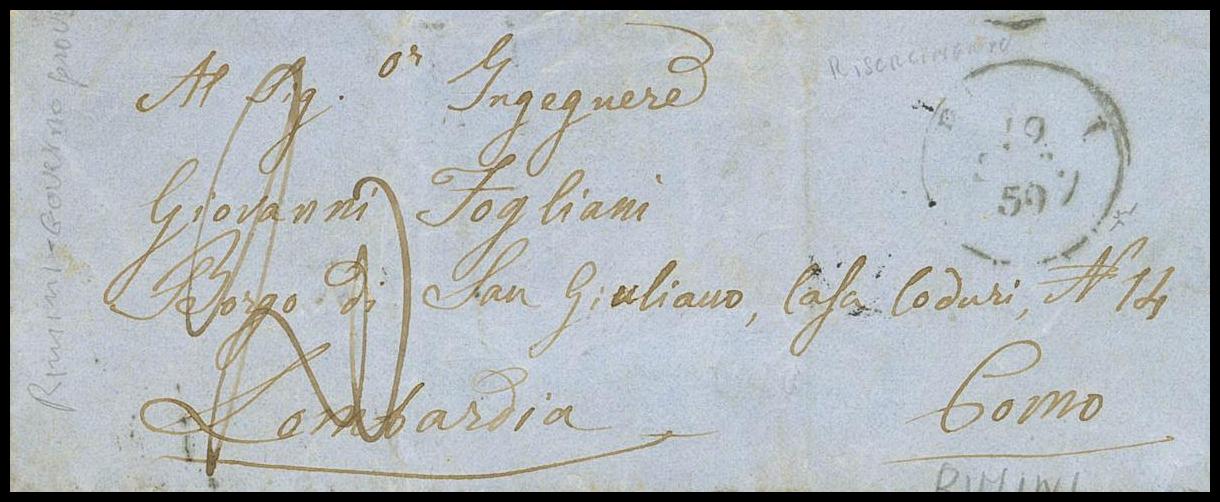 Al Sig.or Ingegnere
Giovanni Fogliani
Borgo di San Giuliano, Casa Coduri, N 14
Lombardia
Como
RISORGIMENTO
19
59
Rimini-Governo provv
RIMINI